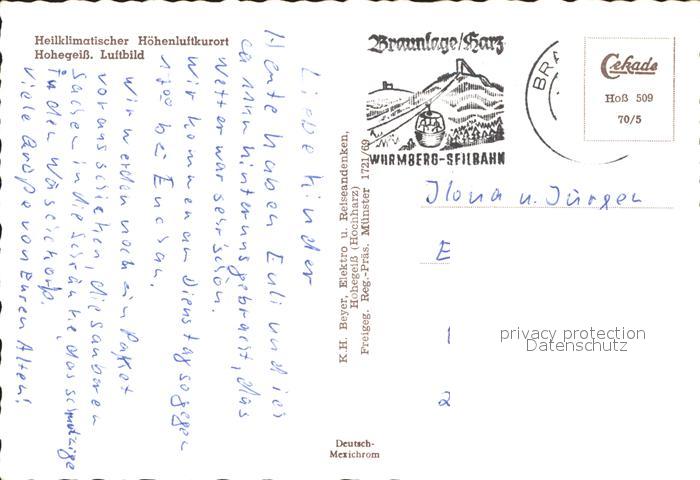 Heilklimatischer Höhenluftkurort
Hohegeiß. Luftbild
Liebe Kinder
Heute haben Euli und ich
Wetter war sehr schön.
Wir kommen am Dienstag so gegen
1700 bei Euch an.
Wir werden noch ein Paket
vorausschicken, die sauberen
Sachen in die Schränke, das schmutzige
in den Wäschekorb.
Viele Grüße von Euren Alten!
K.H. Beyer, Elektro u. Reiseandenken,
Hohegeiß (Hochharz)
Freigeg. Reg.-Präs. Münster 1721/69
Deutsch-
Mexichrom
Braunlage/Harz
WURMBERG-SEILBAHN
BR
Cekade
Hoß 509
70/5
Ilona u. Jürgen
E
1
2
privacy protection
Datenschutz